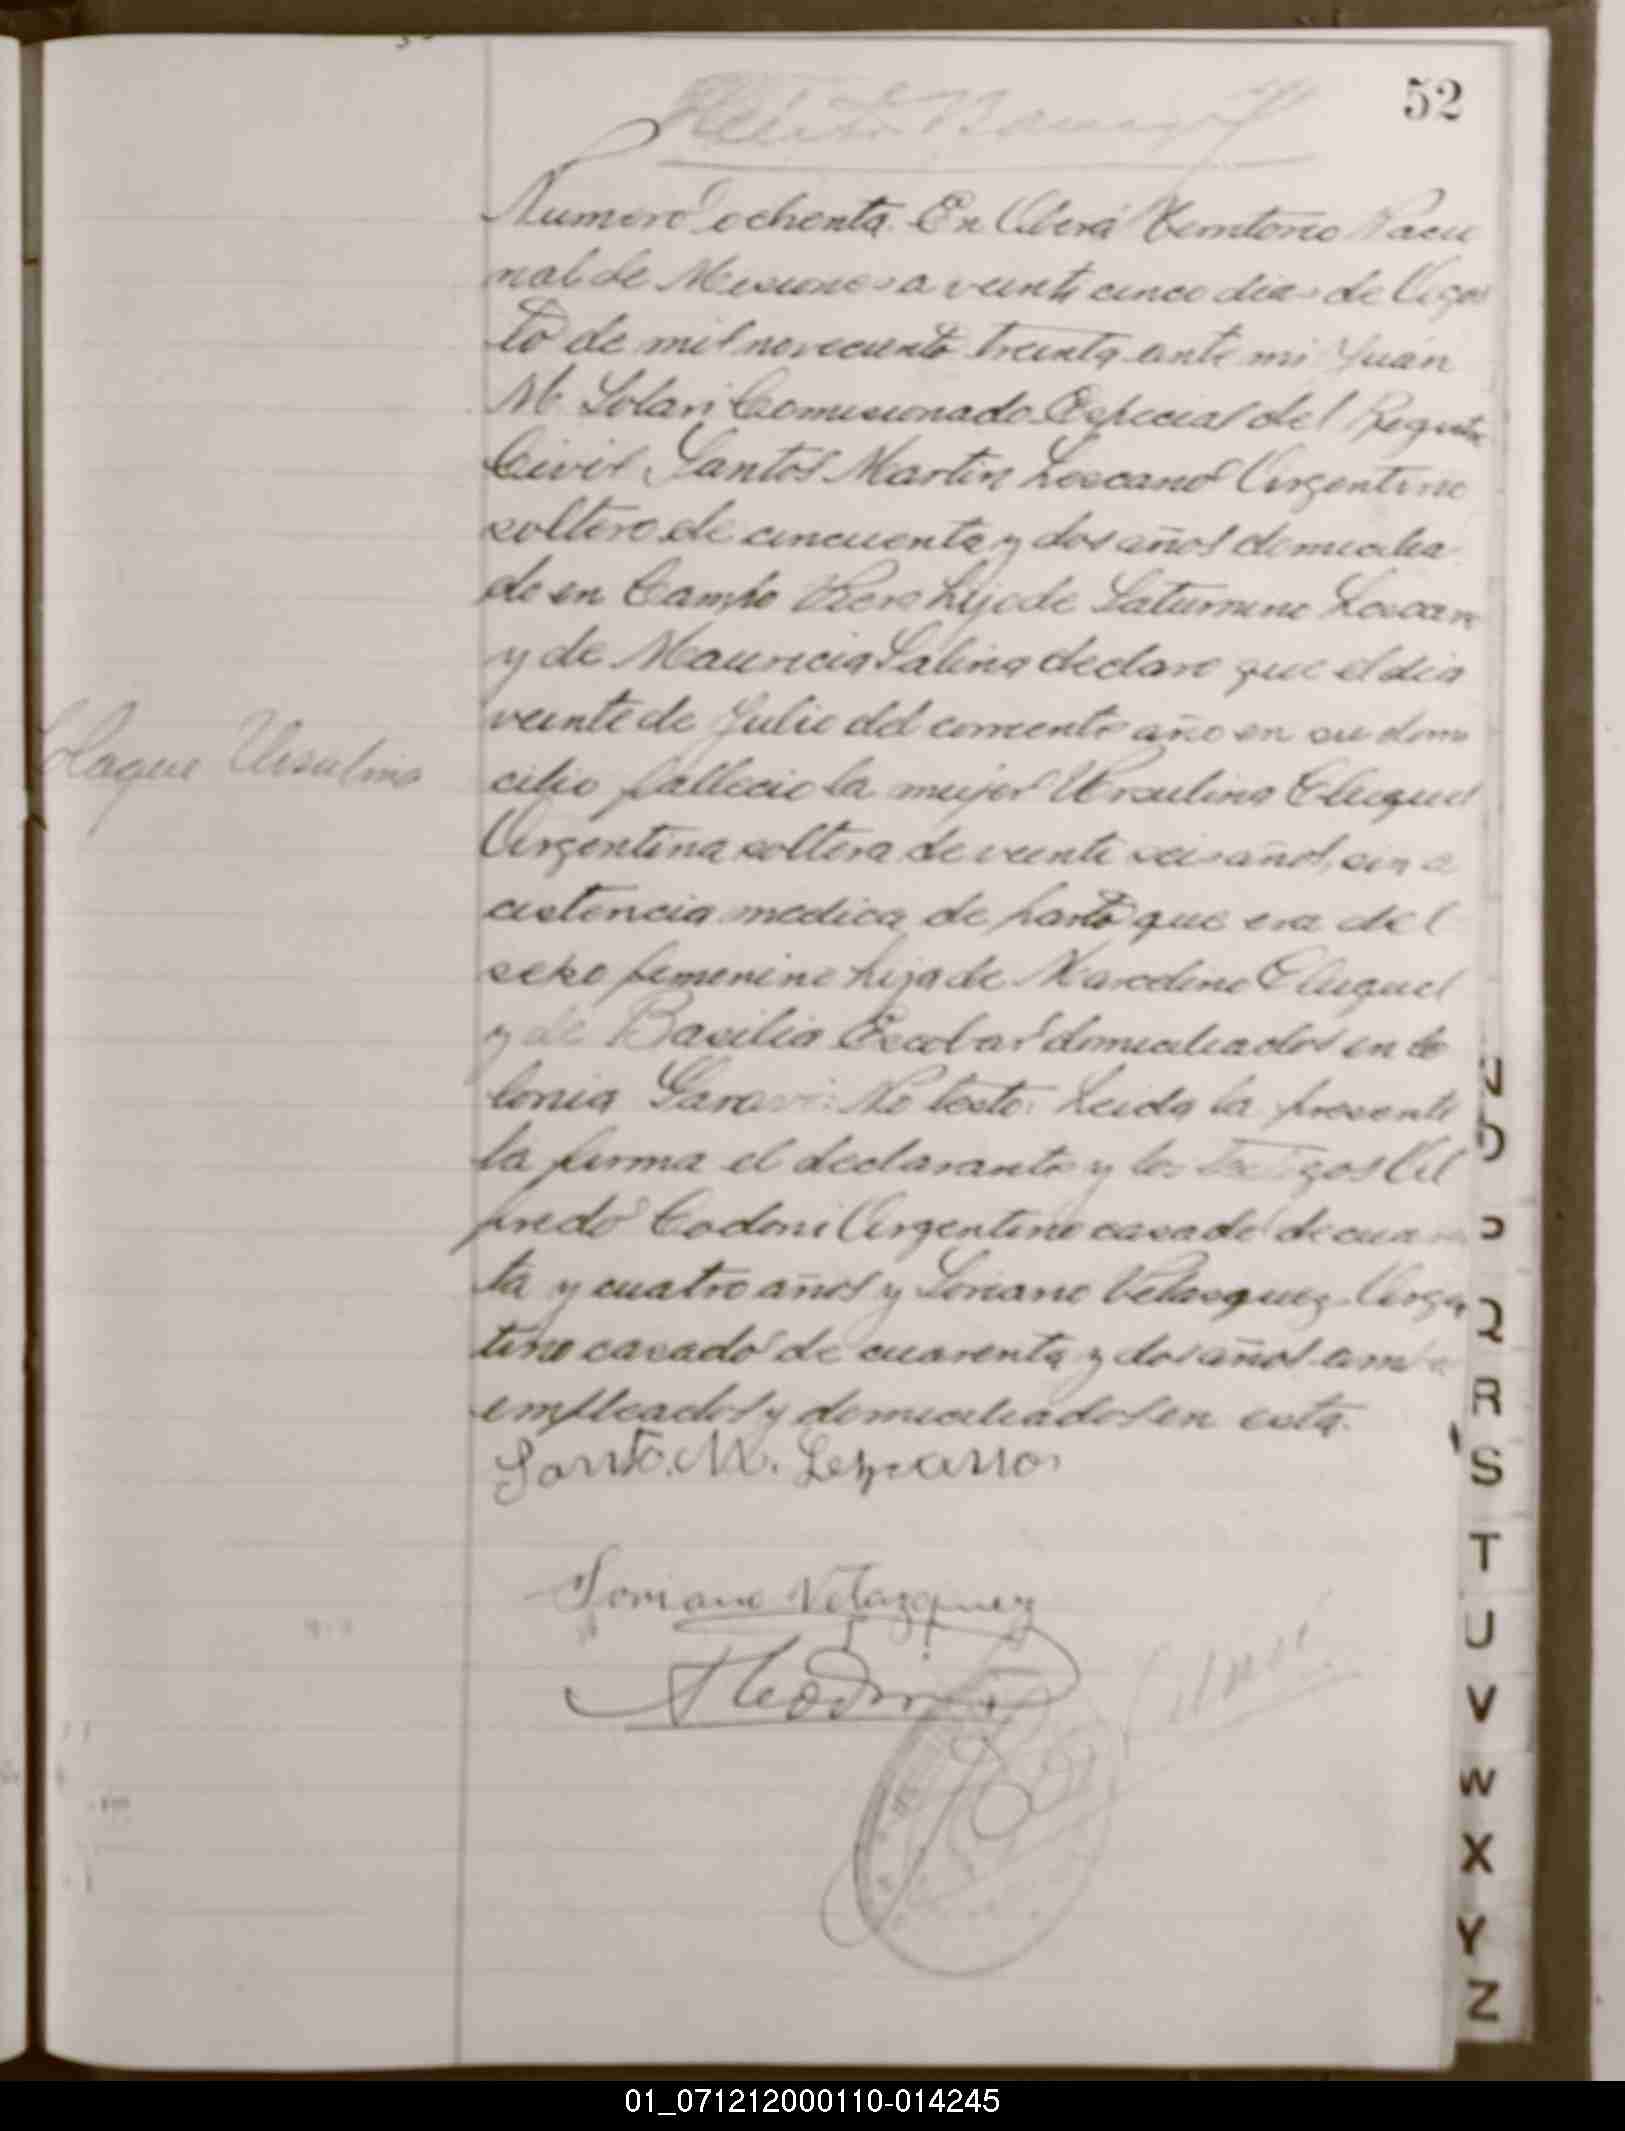 52
Numero ochenta. En Oberá Territorio Nacio
nal de Misiones a veinti cinco dias de Agos
to de mil novecientos treinta ante mi Juan
M. Solari Comisionado Especial del Registro
Civil Santos Martin Lescano Argentino
soltero de cincuenta y dos años domicilia
do en Campo Viera hijo de Saturnino Lescano
y de Mauricia Salina declaro que el dia
veinte de Julio del corriente año en su domi
Ursulina
cilio fallecio la mujer Ursulina
Argentina soltera de veinti seis años, sin a
cistencia medica de parto que era del
sexo femenino hija de Marcelino
y de Basilia Escobar domiciliados en Co
lonia No testo. Leida la presente
la firma el declarante y los Testigos Al
fredo Codoni Argentino casado de cuaren
ta y cuatro años y Soriano Velasquez Argen
tino casado de cuarenta y dos años ambos
empleados y domiciliados en esta.
Santo. M. Lezcano
Soriano Velazquez
N
O
P
Q
R
S
T
U
V
W
X
Y
Z
01_071212000110-014245